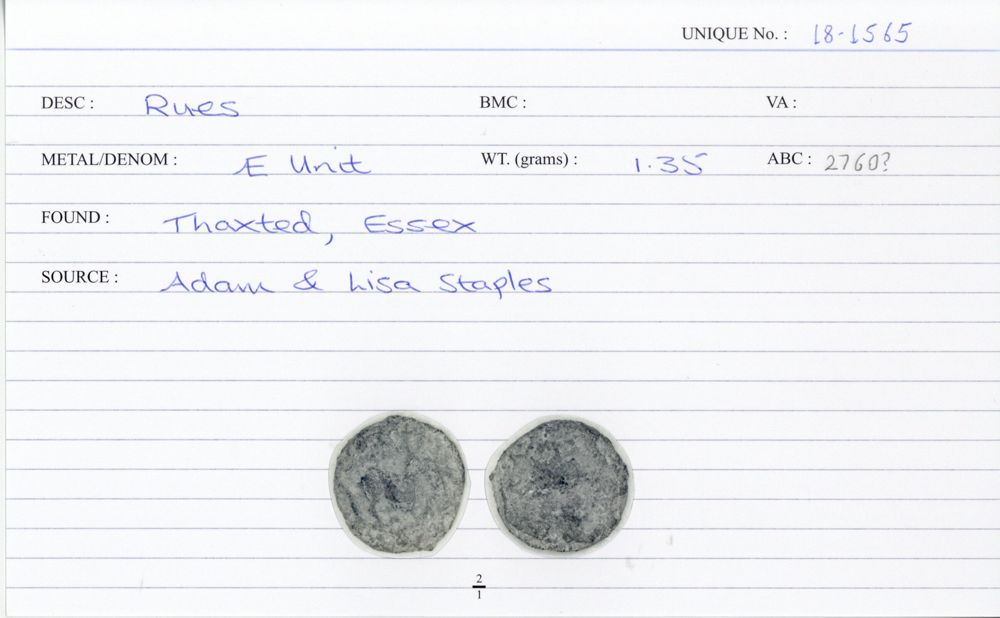 UNIQUE No. : 18-1565
DESC : Rues BMC : VA :
METAL/DENOM : Æ Unit WT. (grams) : 1.35 ABC : 2760?
FOUND : Thaxted, Essex
SOURCE : Adam & Lisa Staples
2
1